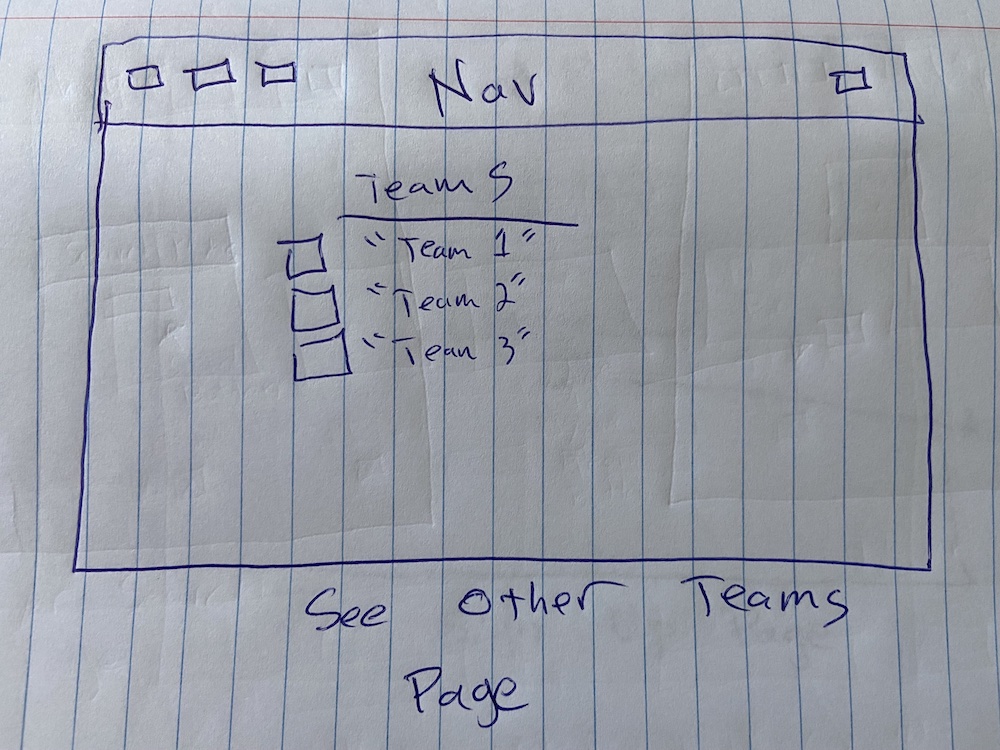 Nav
Teams
"Team 1"
"Team 2"
"Team 3"
See Other Teams
Page